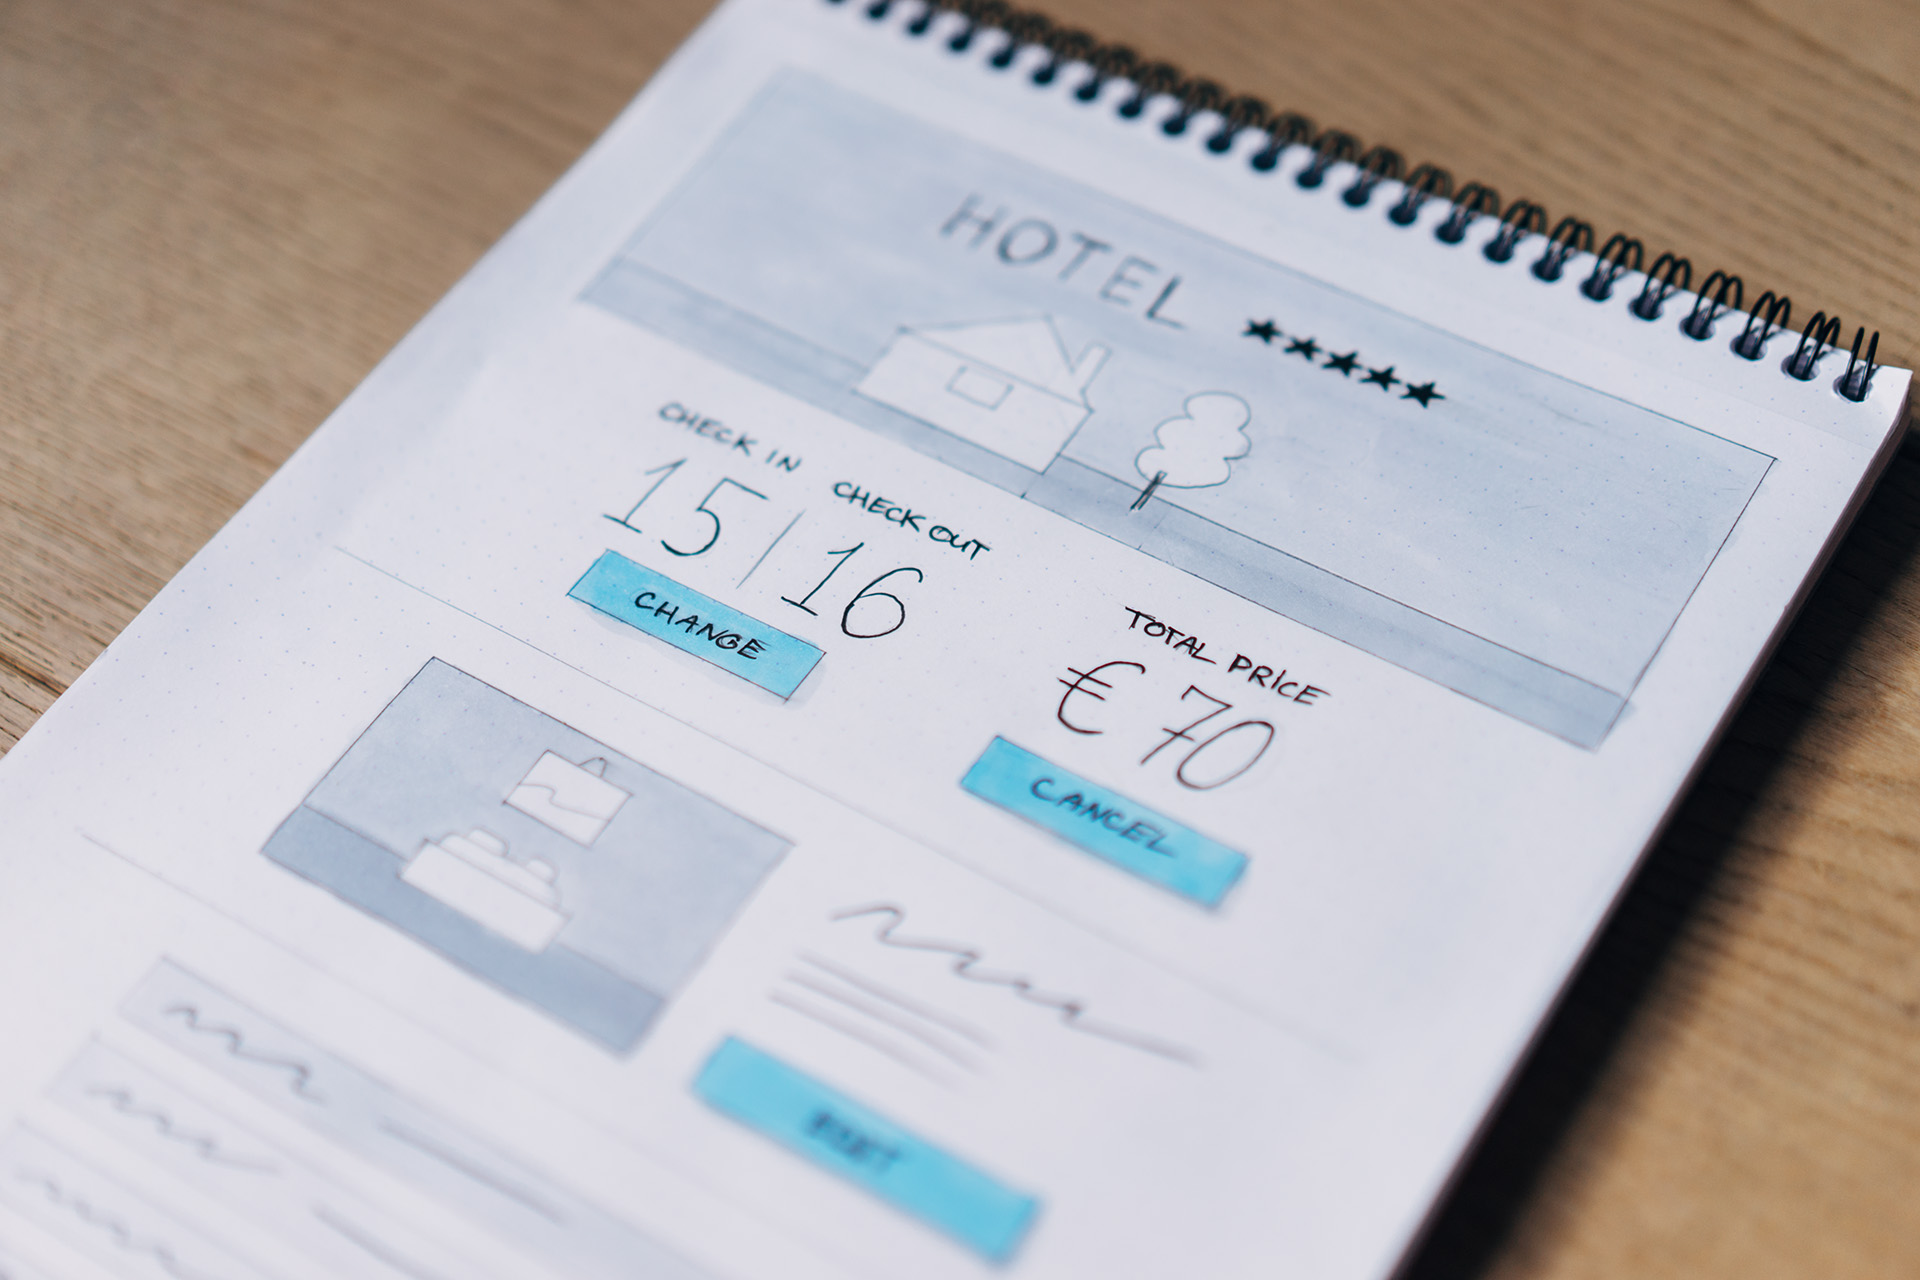 HOTEL ★★★★★
CHECK IN
CHECK OUT
15 | 16
CHANGE
TOTAL PRICE
€ 70
CANCEL